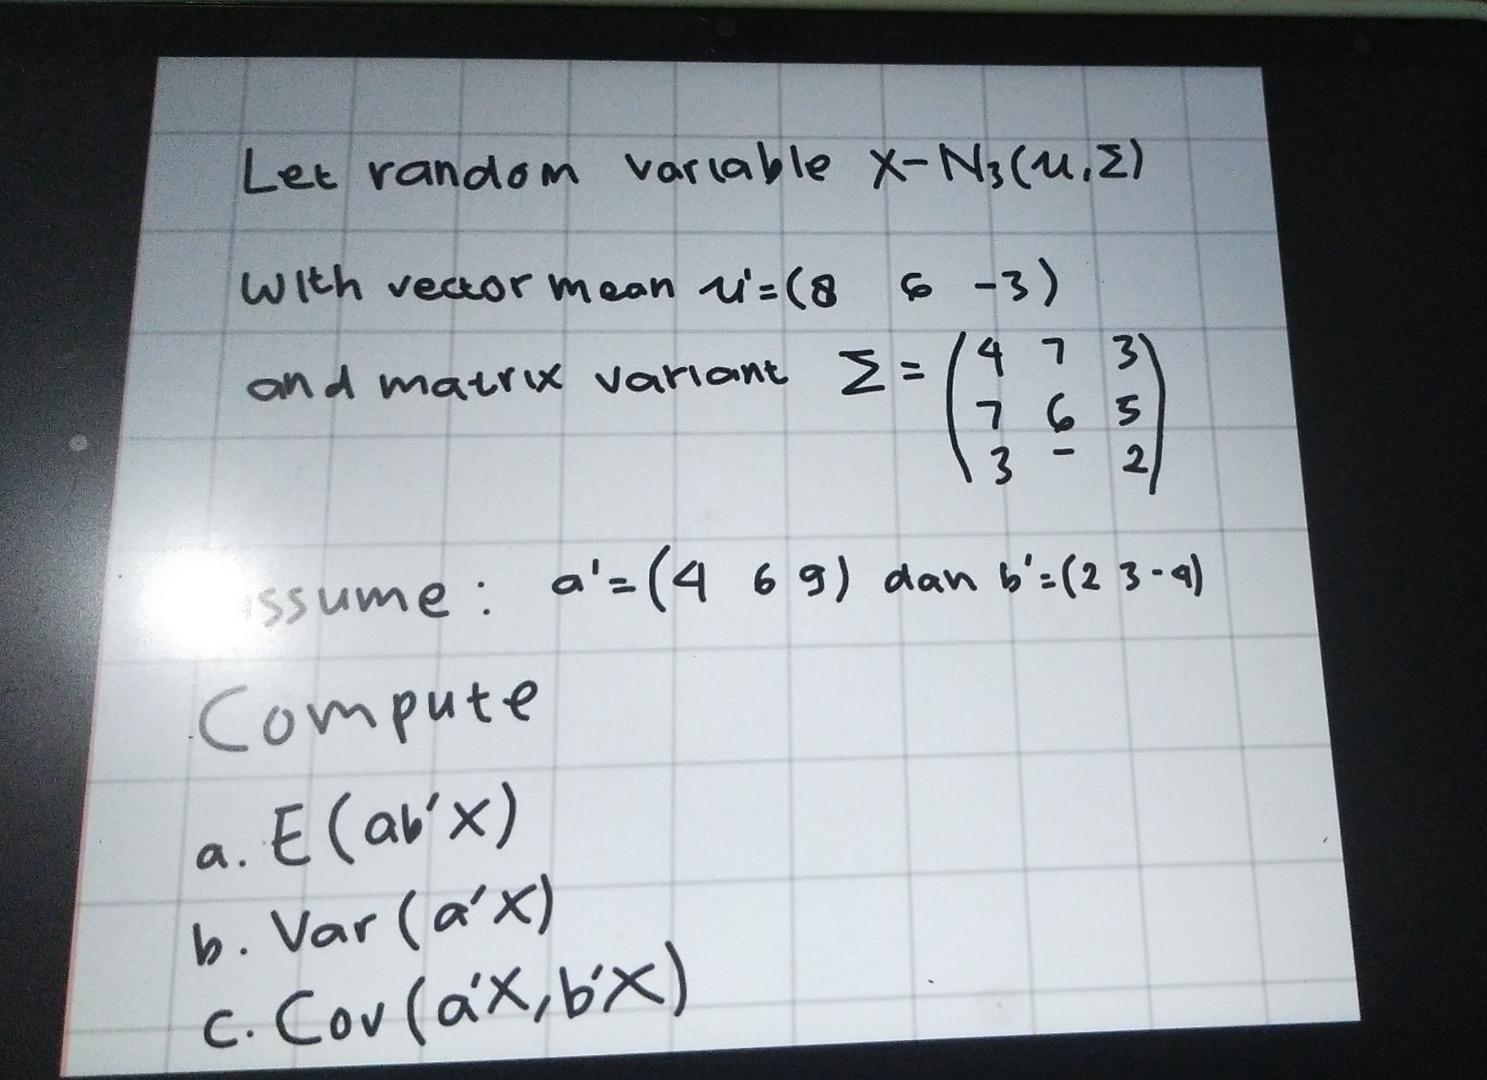 Let random variable X-N3(u,Σ)
With vector mean u'=(8 6 -3)
and matrix variant Σ = (4 7 3
7 6 5
3 - 2)
ssume : a'=(4 6 9) dan b'=(2 3 -4)
Compute
a. E(ab'X)
b. Var(a'X)
c. Cov(a'X,b'X)